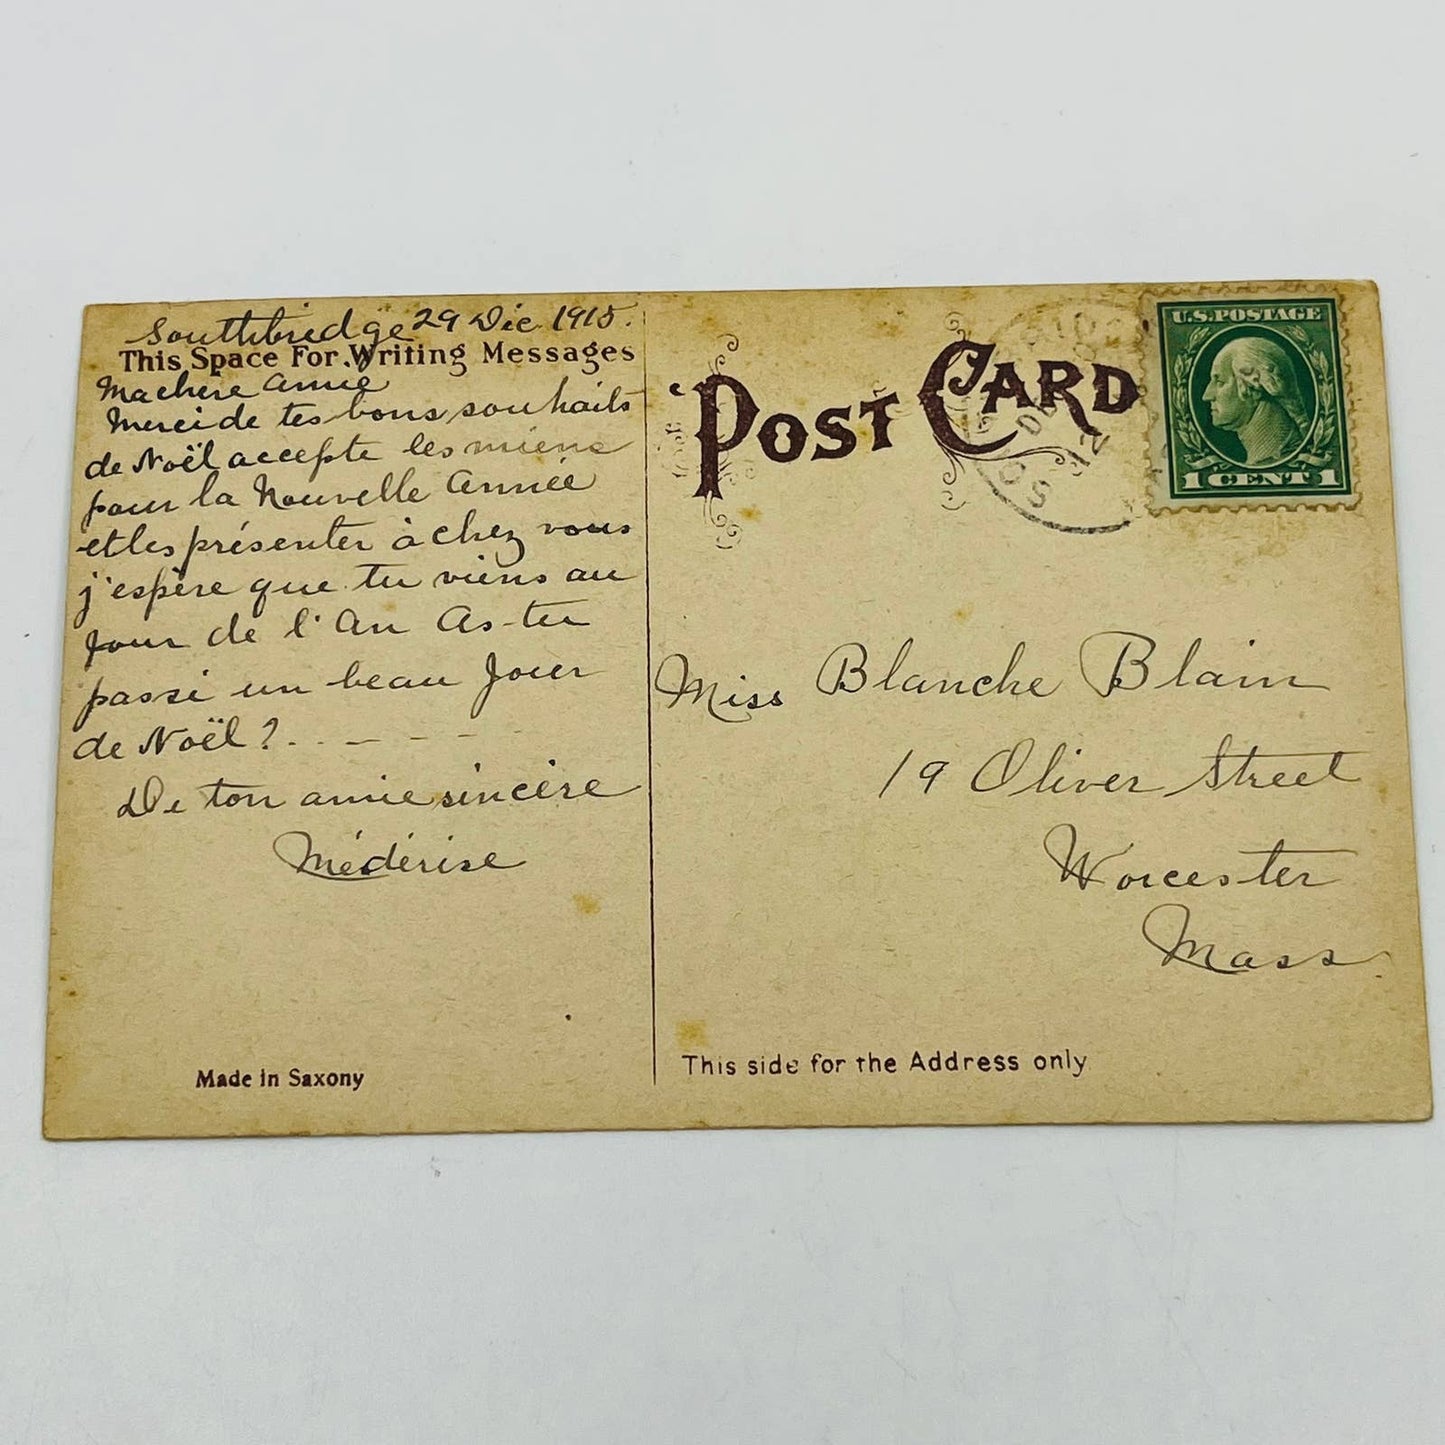 Southbridge 29 Dec 1915.
This Space For Writing Messages
Ma chère amie
Merci de tes bons souhaits
de Noël accepte les miens
pour la Nouvelle Année
et les présenter à chez vous
j'espère que tu viens au
Jour de l'An As-tu
passé un beau Jour
de Noël?
De ton amie sincère
Médérise
Made in Saxony
POST CARD
U.S. POSTAGE
1 CENT 1
Miss Blanche Blain
19 Oliver Street
Worcester
Mass
This side for the Address only